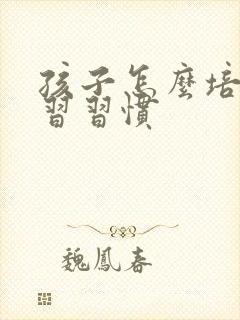 孩子怎麼培
習習慣
魏鳳春